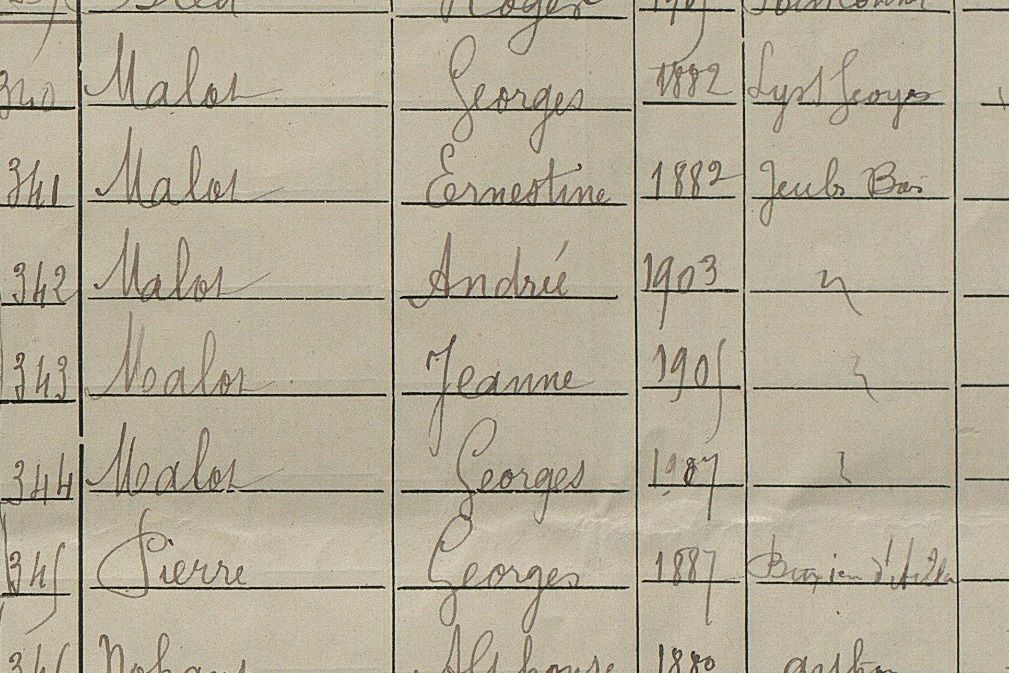 Roger
340 Malot Georges 1882 Lyst Georges
341 Malot Ernestine 1882 Jeubs Bas
342 Malot André 1903 "
343 Malot Jeanne 1905 "
344 Malot Georges 1907 "
345 Pierre Georges 1887
346 Alphonse 1880